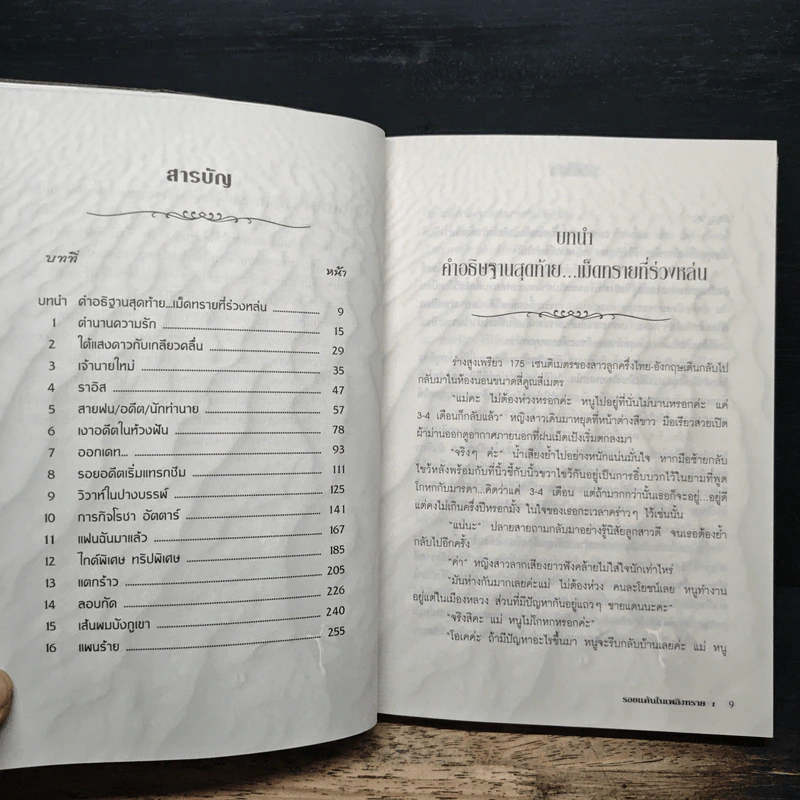 สารบัญ
บทที่
หน้า
บทนำ คำอธิฐานสุดท้าย...เม็ดทรายที่ร่วงหล่น 9
1 ตำนานความรัก 15
2 ใต้แสงดาวกับเกลียวคลื่น 29
3 เจ้านายใหม่ 35
4 ราอิส 47
5 สายฝน/อดีต/นักทำนาย 57
6 เงาอดีตในห้วงฝัน 78
7 ออกเดท... 93
8 รอยอดีตเริ่มแทรกซึม 111
9 วิวาห์ในปางบรรพ์ 125
10 ภารกิจโรชา อัตตาร์ 141
11 แฟนฉันมาแล้ว 167
12 ไกด์พิเศษ ทริปพิเศษ 185
13 แตกร้าว 205
14 ลอบกัด 226
15 เส้นผมบังภูเขา 240
16 แผนร้าย 255
บทนำ
คำอธิษฐานสุดท้าย...เม็ดทรายที่ร่วงหล่น
ร่างสูงเพรียว 175 เซนติเมตรของสาวลูกครึ่งไทย-อังกฤษเดินกลับไป
กลับมาในห้องนอนขนาดสี่คูณสี่เมตร
"แม่คะ ไม่ต้องห่วงหรอกค่ะ หนูไปอยู่ที่นั่นไม่นานหรอกค่ะ แค่
3-4 เดือนก็กลับแล้ว" หญิงสาวเดินมาหยุดที่หน้าต่างสีขาว มือเรียวสวยเปิด
ผ้าม่านออกดูอากาศภายนอกที่ฝนเม็ดเป้งเริ่มตกลงมา
"จริงๆ ค่ะ" น้ำเสียงย้ำไปอย่างหนักแน่นมั่นใจ หากมือซ้ายกลับ
ไขว้หลังพร้อมกับที่นิ้วชี้กับนิ้วขวาไขว้กันอยู่เป็นการอึ๋บบวกไว้ในยามที่พูด
โกหกกับมารดา...คิดว่าแค่ 3-4 เดือน แต่ถ้ามากกว่านั้นเธอก็จะอยู่...อยู่ดี
แต่คงไม่เกินครึ่งปีหรอกมั้ง ในใจของเธอกะเวลาคร่าวๆ ไว้เช่นนั้น
"แน่นะ" ปลายสายถามกลับมาอย่างรู้นิสัยลูกสาวดี จนเธอต้องย้ำ
กลับไปอีกครั้ง
"ค่า" หญิงสาวลากเสียงยาวฟังคล้ายไม่ใส่ใจนักเท่าไหร่
"มันห่างกันมากเลยค่ะแม่ ไม่ต้องห่วง คนละโยชน์เลย หนูทำงาน
อยู่แต่ในเมืองหลวง ส่วนที่มีปัญหากันอยู่แถวๆ ชายแดนนะคะ"
"จริงสิคะ แม่ หนูไม่โกหกหรอกค่ะ"
"โอเคค่ะ ถ้ามีปัญหาอะไรขึ้นมา หนูจะรีบกลับบ้านเลยค่ะ แม่ หนู
รอยแค้นในเพลิงทราย 1 9